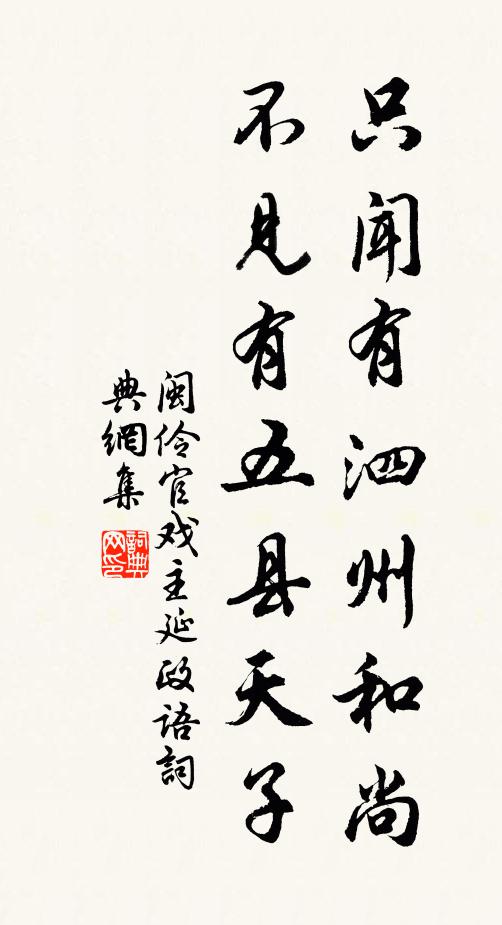 只闻有泗州和尚
不见有五县天子
闽伶官戏主延政语詞
典網集
詞典网印